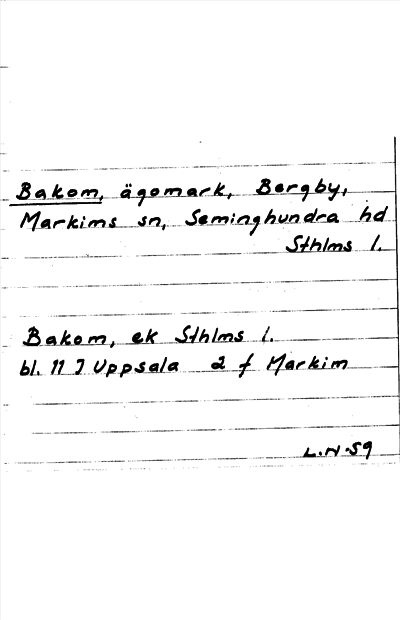 Bakom, ägomark, Bergby,
Markims sn, Seminghundra hd
Sthlms l.
Bakom, ek Sthlms l.
bl. 11 I Uppsala 2 f Markim
L.N-59